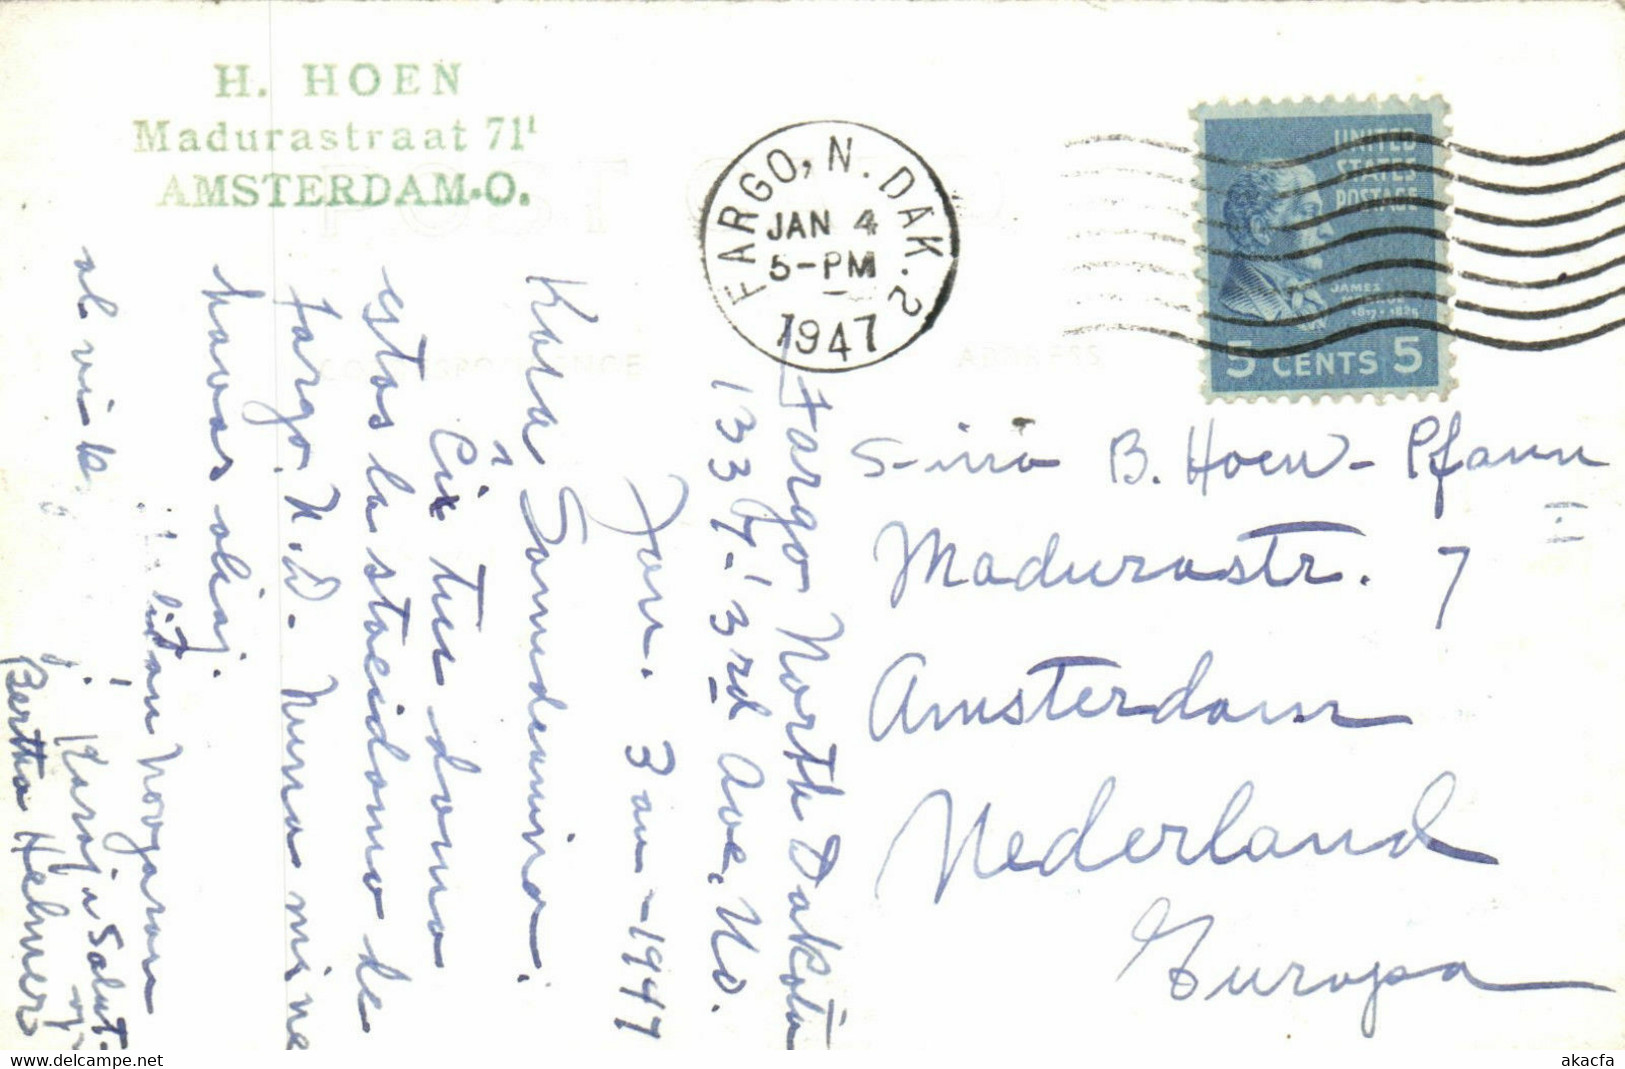 H. HOEN
Madurastraat 71¹
AMSTERDAM-O.
POST CARD
ADDRESS
FARGO, N. DAK. 2
JAN 4
5-PM
1947
UNITED
STATES
POSTAGE
JAMES
5 CENTS 5
Fargo North Dakota
1337-3rd Ave. No.
Jan. 3an-1947
Kara Samideanino.
Ĉi tiu domo
estas la
Fargo. N.D. Nuna mi ne
havas aliaj.
al vi
Karaj Salut-
oj
Bertha Helmer
S-ino B. Hoen-Pfann
Madurastr. 7
Amsterdam
Nederland
Europa
akacfa
www.delcampe.net